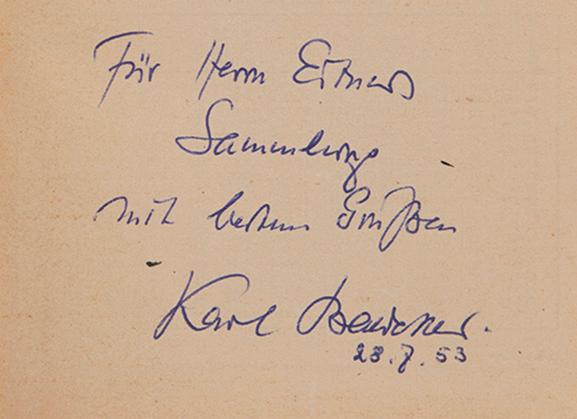 Für Herrn Eitners
Sammlung
mit besten Grüßen
Karl
28.7.53